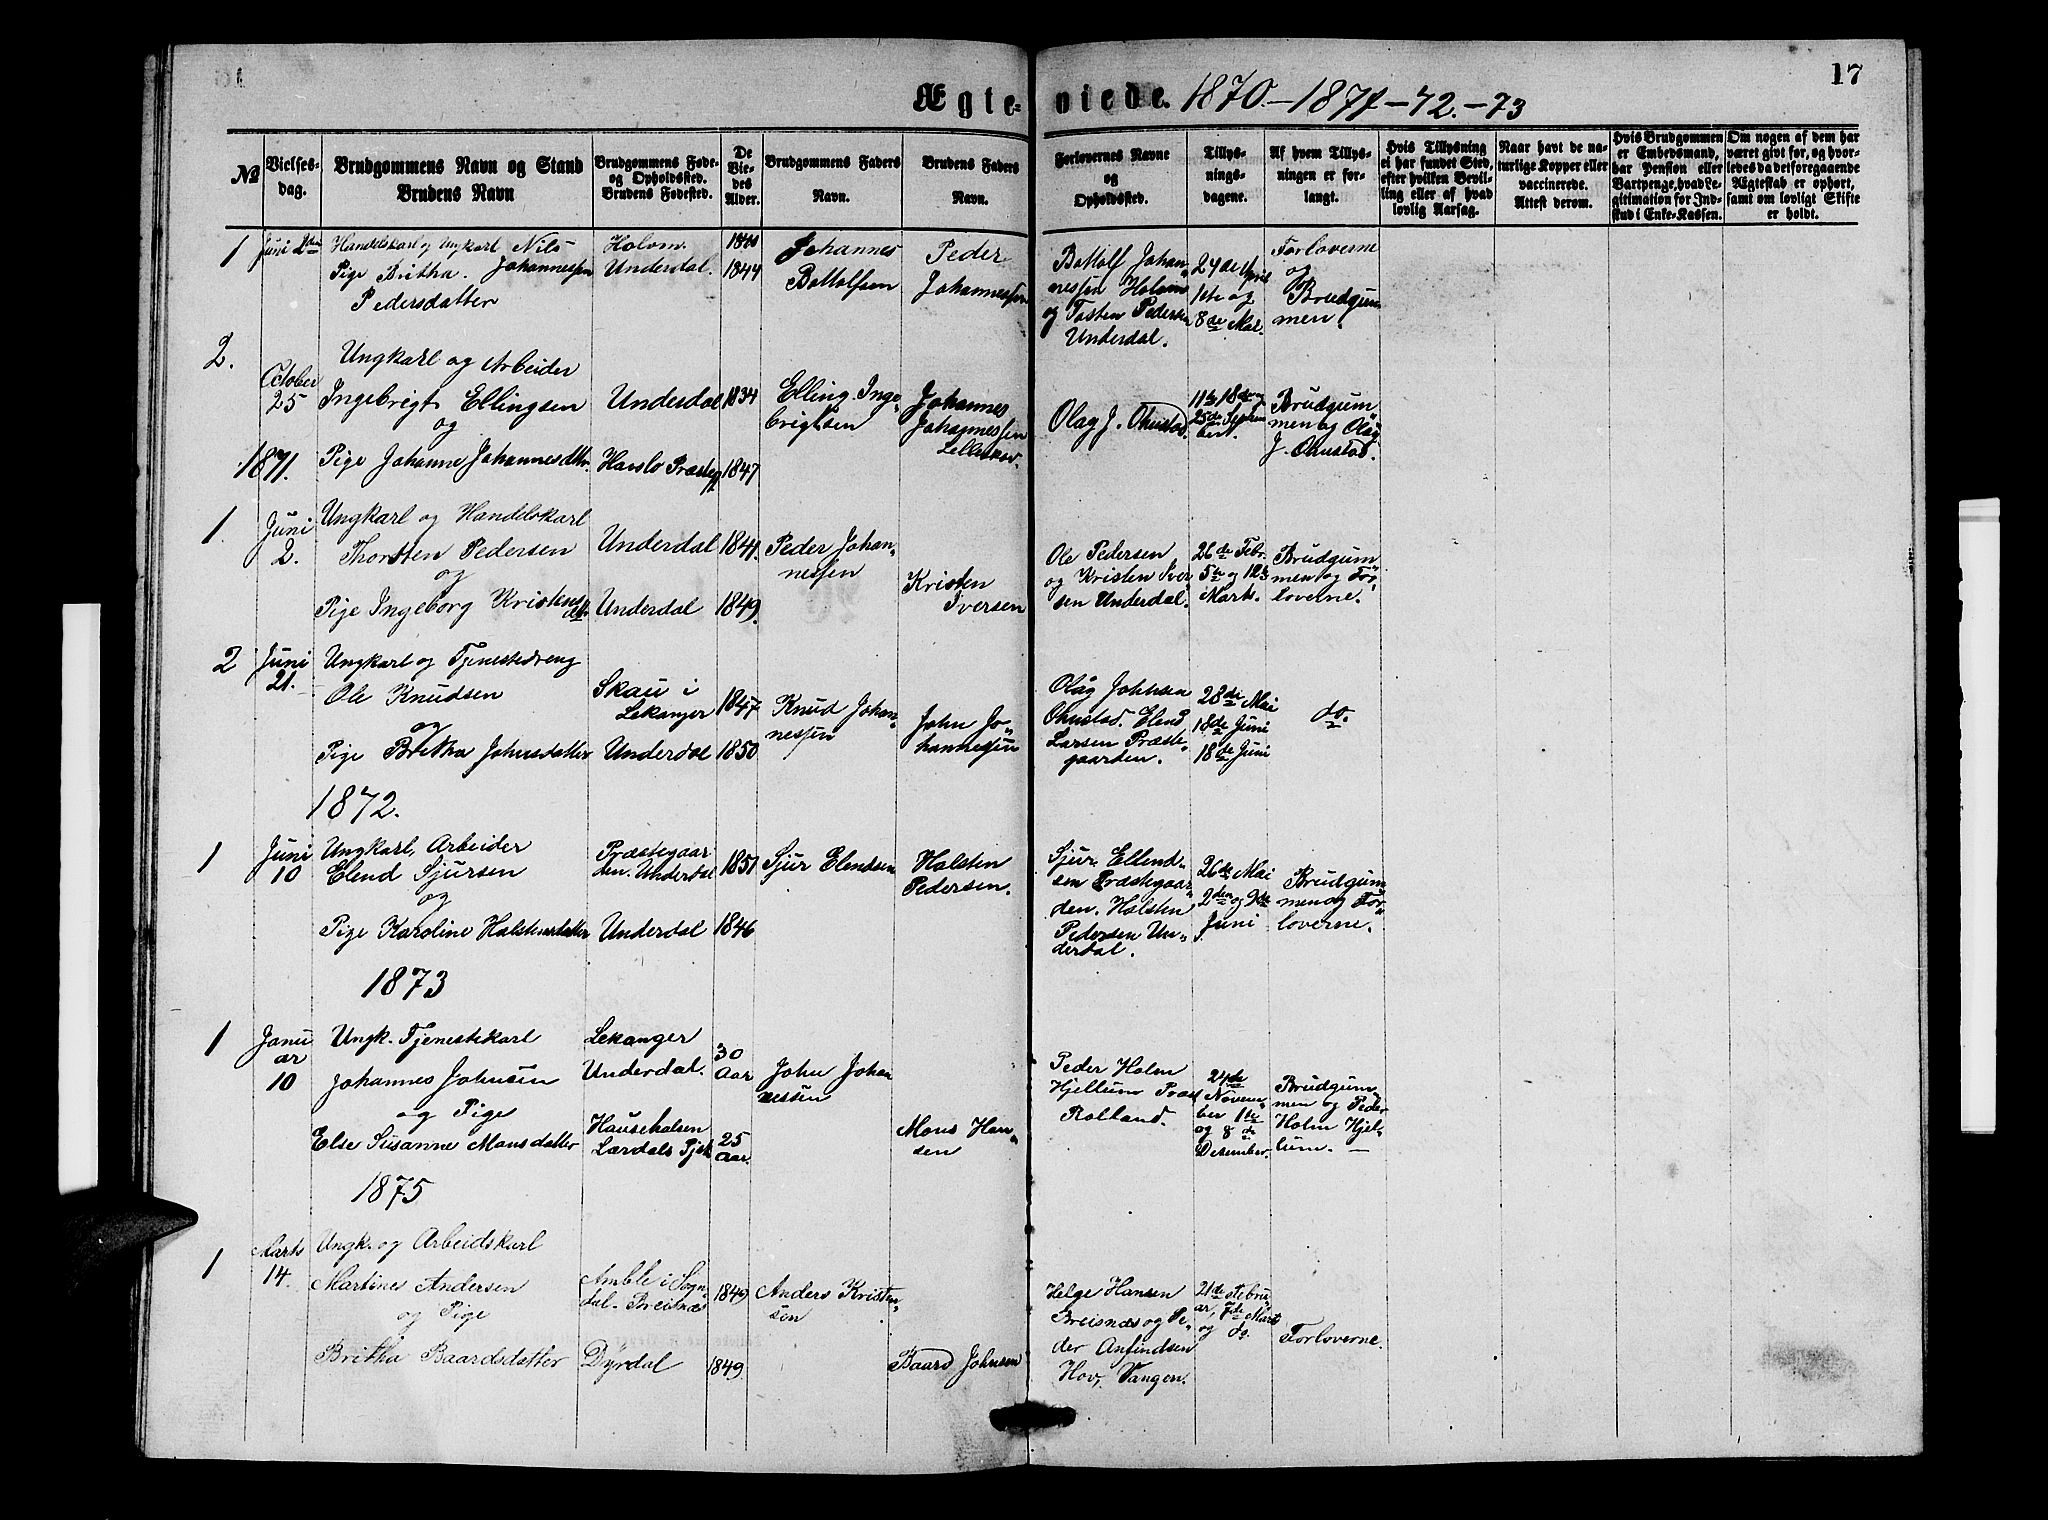 17
Ægteviede. 1870.-1871-72.-73
№
Vielses-dag.
Brudgommens Navn og Stand
Brudens Navn
Brudgommens Føde- og Opholdssted.
Brudens Fødested.
De Viedes Alder.
Brudgommens Faders Navn.
Brudens Faders Navn.
Forlovernes Navne og Opholdssted.
Tillysningsdagene.
Af hvem Tillysningen er forlangt.
Hvis Tillysning ei har fundet Sted, efter hvilken Bevilling eller af hvad lovlig Aarsag.
Naar havt de naturlige Kopper eller vaccinerede. Attest derom.
Hvis Brudgommen er Embedsmand, har Pension eller Vartpenge, hvad Legitimation for Indskud i Enke-Kassen.
Om nogen af dem har været gift før, og hvorledes da det foregaaende Ægteskab er ophørt, samt om lovligt Skifte er holdt.
1
Juni
Handelskarl og Ungkarl Nils Johannessen
Pige Britha Pedersdatter
Holom.
Underdal.
1844
Johannes
Bottolfsen
Peder
Johannessen
Bottolf Johan-
nessen Holom
og Tosten Pedersen
Underdal.
24de April
1ste og
8de Mai.
Forloverne
og
Brudgum
men.
2.
October
25
Ungkarl og Arbeider
Ingebrigt Ellingsen
og
Pige Johanne Johannesdtt.
Underdal
1834
Hafslo Præsteg
1847
Elling Inge-
brigtsen
Johannes
Johannessen
Olag J. Ohnstad.
11te 18de og
25de Septem
ber.
Brudgum-
men og Olag
J. Ohnstad.
1871.
1
Juni
2.
Ungkarl og Handelskarl
Thorsten Pedersen
og
Pige Ingeborg Kristensdtt.
Underdal
1841.
Underdal
1849.
Peder Johan-
nessen
Kristen
Iversen
Ole Pedersen
og Kristen Iver-
sen Underdal.
26de Febr.
5te og 12te
Marts.
Brudgum-
men og For-
loverne.
2
Juni
21.
Ungkarl og Tjenestedreng
Ole Knudsen
og
Pige Britha Johnsdatter
Skau i
Lekanger
1847
Underdal
1850
Knud Johan-
nessen
John Jo-
hannessen
Olag Johnsen
Ohnstad. Elend
Larsen Præste-
gaarden.
28de Mai
18de Juni
18de Juni
do.
1872.
1
Juni
10
Ungkarl, Arbeider
Elend Sjursen
og
Pige Karoline Halstensdatter
Præstegaar
den. Underdal
1851
Underdal
1846
Sjur Elendsen
Halsten
Pedersen.
Sjur Ellend-
sen Præstegaar-
den. Halsten
Pedersen Un-
derdal.
26de Mai
2den og 9de
Juni
Brudgum-
men og For-
loverne.
1873
1
Janu
ar
10
Ungk. Tjenestekarl
Johannes Johnsen
og Pige
Else Susanne Monsdatter
Lekanger
Underdal.
30
Aar
Lærdals Pjek
25
Aar.
John Johan
nessen
Mons Han-
sen
Peder Holm
Hjellum
24de
Novem-
ber 1te
og 8de
Desember.
Brudgum-
men og Peder
Holm Hjel-
lum.
1875
1
Marts
14.
Ungk. og Arbeidskarl
Martines Andersen
og Pige
Britha Baardsdatter
Amble i Sogn-
dal. Breisnæs
1849
Dyrdal
1849.
Anders Kristen-
sen
Baard Johnsen
Helge Hansen
Breisnæs og Pe-
der Anfindsen
Hov, Vangen.
21de Febru-
ar, 7de Marts
og do.
Forloverne.